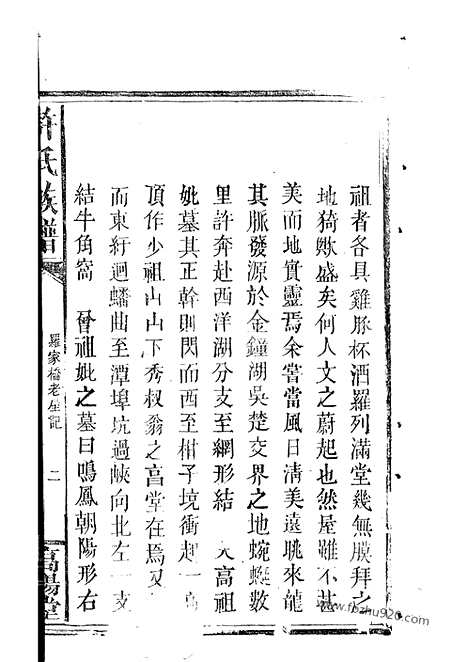 祖者各具雞豚杯酒羅列滿堂幾無膜拜之
地猗歟盛矣何人文之蔚起也然屋雖不甚
美而地實靈焉余嘗當風日清美遠眺來龍
其脈發源於金鐘湖吳楚交界之地蜿蜒數
里許奔赴西洋湖分支至網形結 高祖
妣墓其正幹則閃而西至柑子境衝起一
頂作少祖山山下秀叔翁之享堂在焉又
而東紆迴蟠曲至潭埠坑過峽向北左一支
結牛角窩 晉祖妣之墓曰鳴鳳朝陽形右
許氏族譜
羅家橋老屋記
二
高陽堂
www.fbzhu920.com